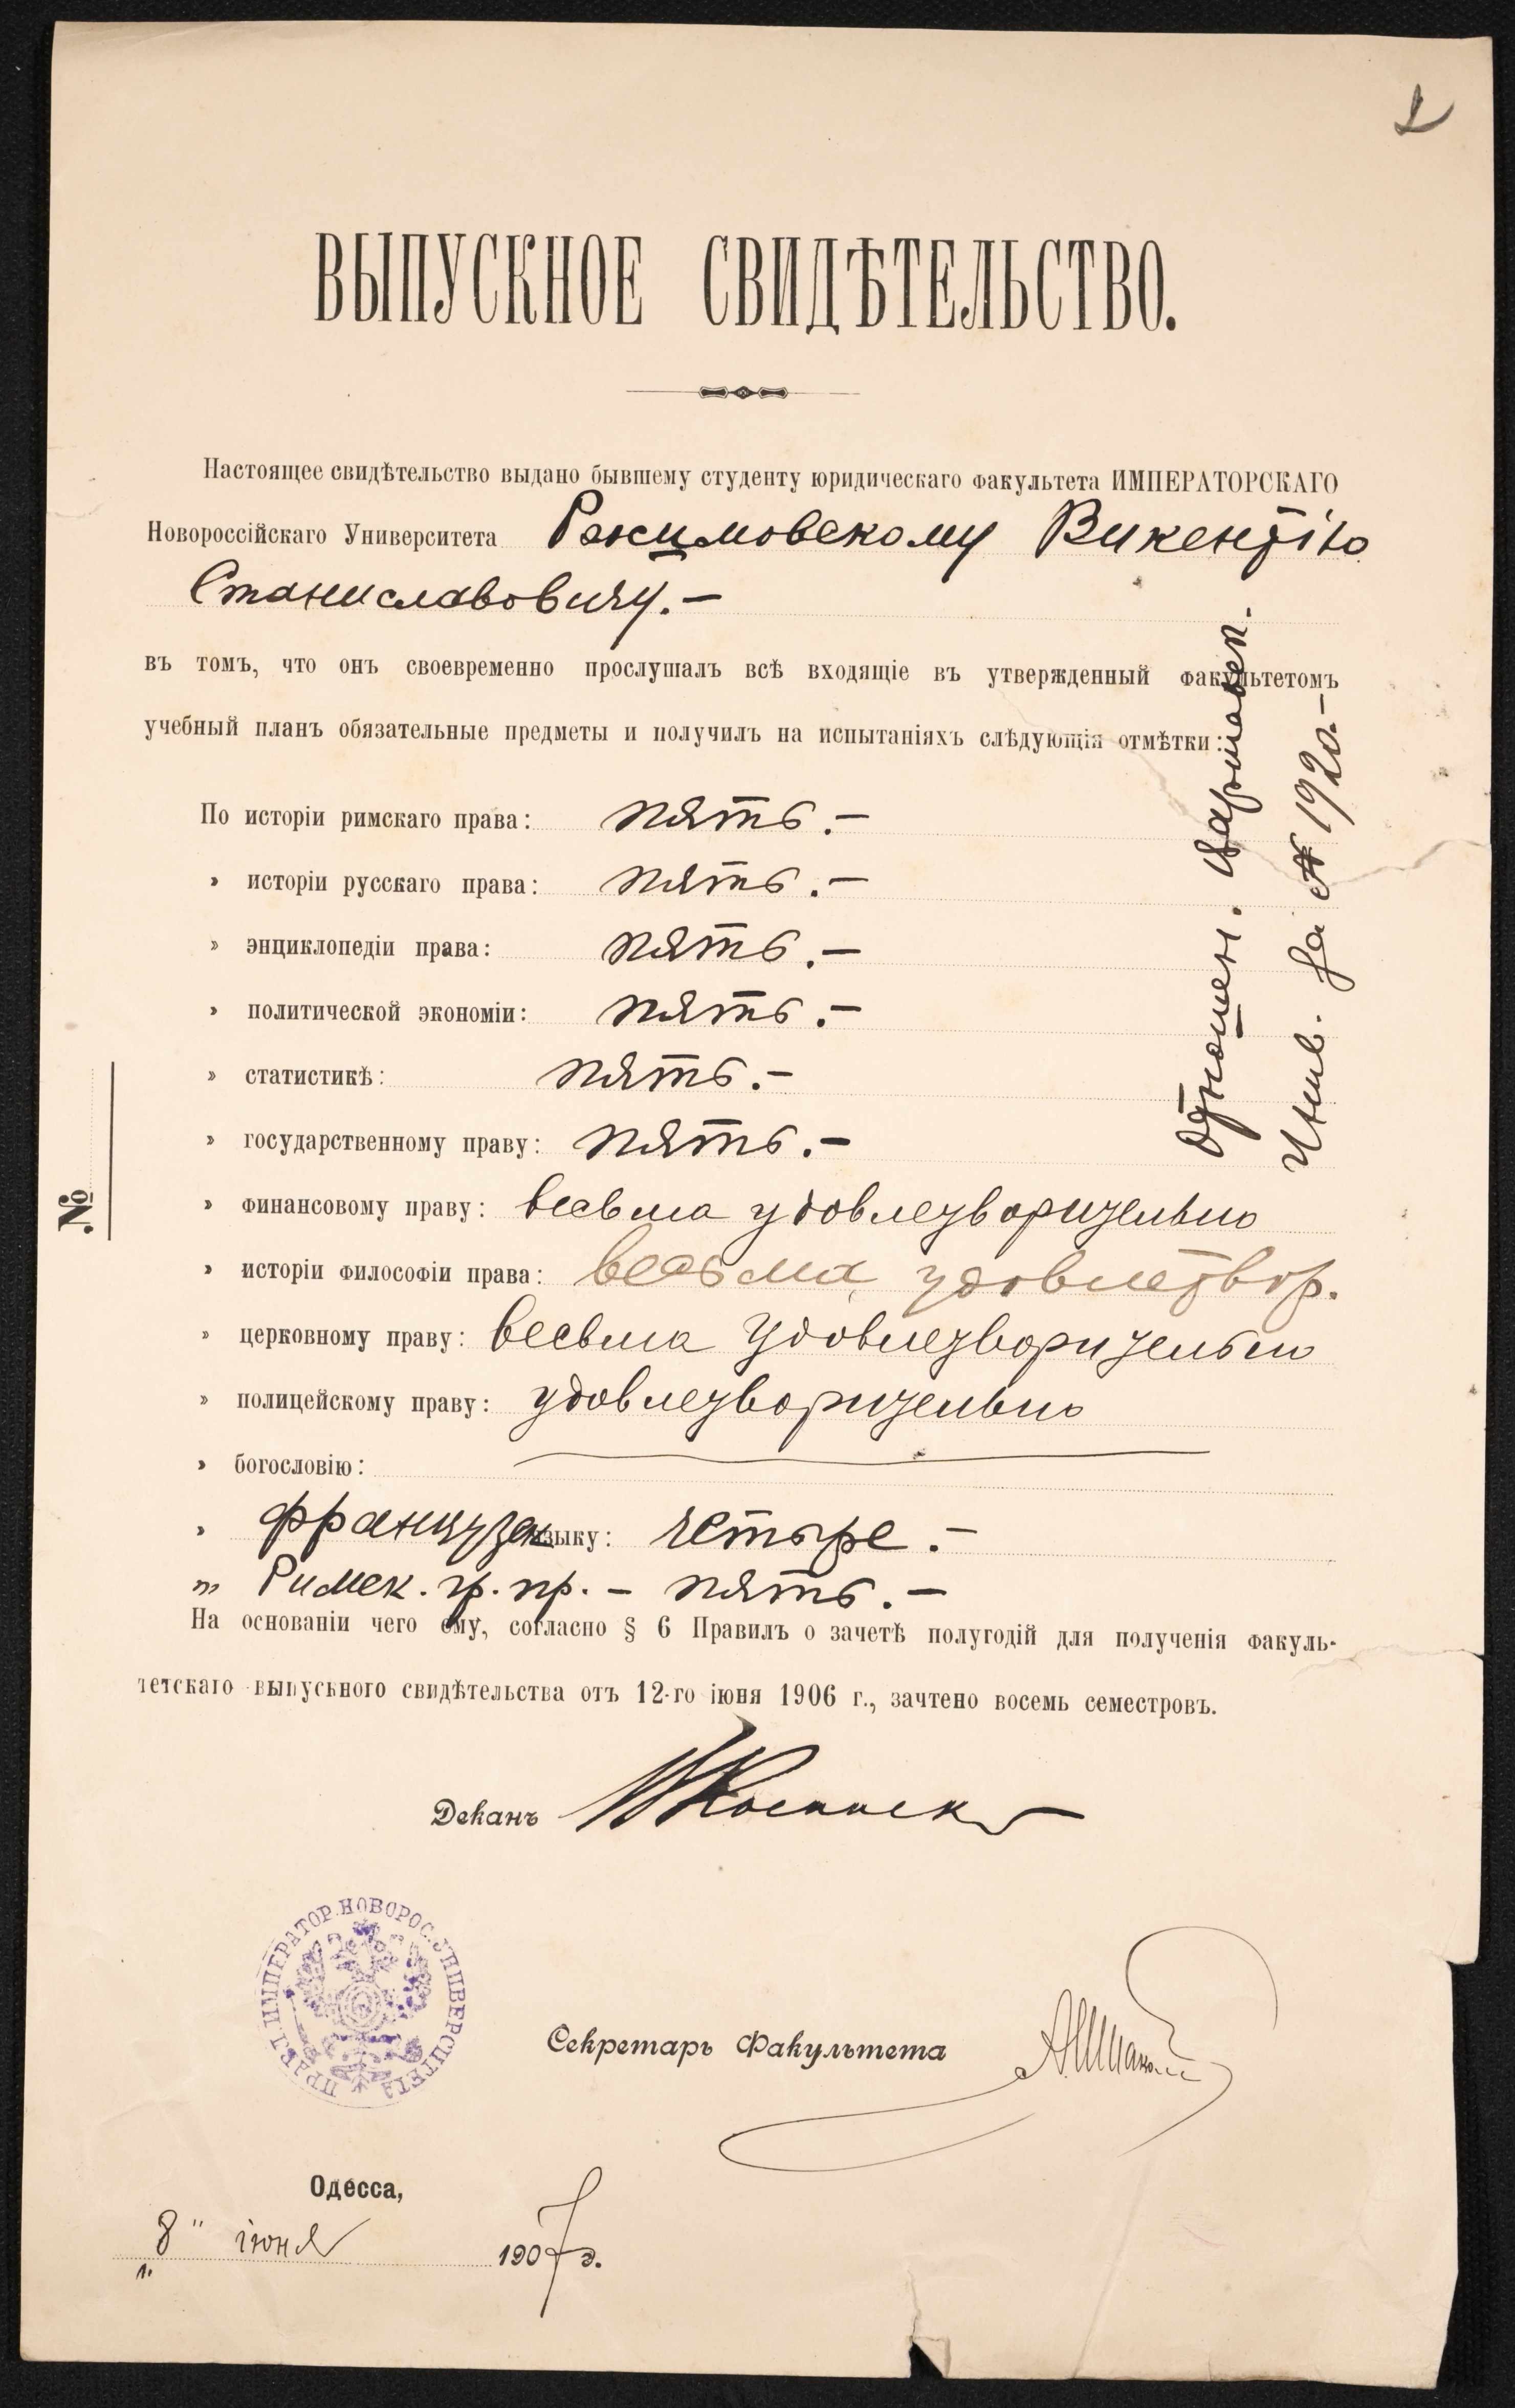 ВЫПУСКНОЕ СВИДѢТЕЛЬСТВО.
Настоящее свидѣтельство выдано бывшему студенту юридическаго факультета ИМПЕРАТОРСКАГО
Новороссійскаго Университета Викентію
Станиславовичу.—
въ томъ, что онъ своевременно прослушалъ всѣ входящіе въ утвержденный факультетомъ
учебный планъ обязательные предметы и получилъ на испытаніяхъ слѣдующія отмѣтки:
По исторіи римскаго права: пять.—
» исторіи русскаго права: пять.—
» энциклопедіи права: пять.—
» политической экономіи: пять.—
» статистикѣ: пять.—
» государственному праву: пять.—
» финансовому праву: весьма удовлетворительно
» исторіи философіи права: весьма удовлетвор.
» церковному праву: весьма удовлетворительно
» полицейскому праву: удовлетворительно
» богословію:
» французск языку: четыре.—
" Римск. гр. пр. — пять.—
На основаніи чего ему, согласно § 6 Правилъ о зачетѣ полугодій для полученія факуль-
тетскаго выпускного свидѣтельства отъ 12-го іюня 1906 г., зачтено восемь семестровъ.
Деканъ
ПРАВЛ. ИМПЕРАТОР. НОВОРОС. УНИВЕРСИТЕТА
Секретарь Факультета
Одесса,
"8" іюня 1907 г.
№
отношен. Варшавск.
Унив. за № 1920.—